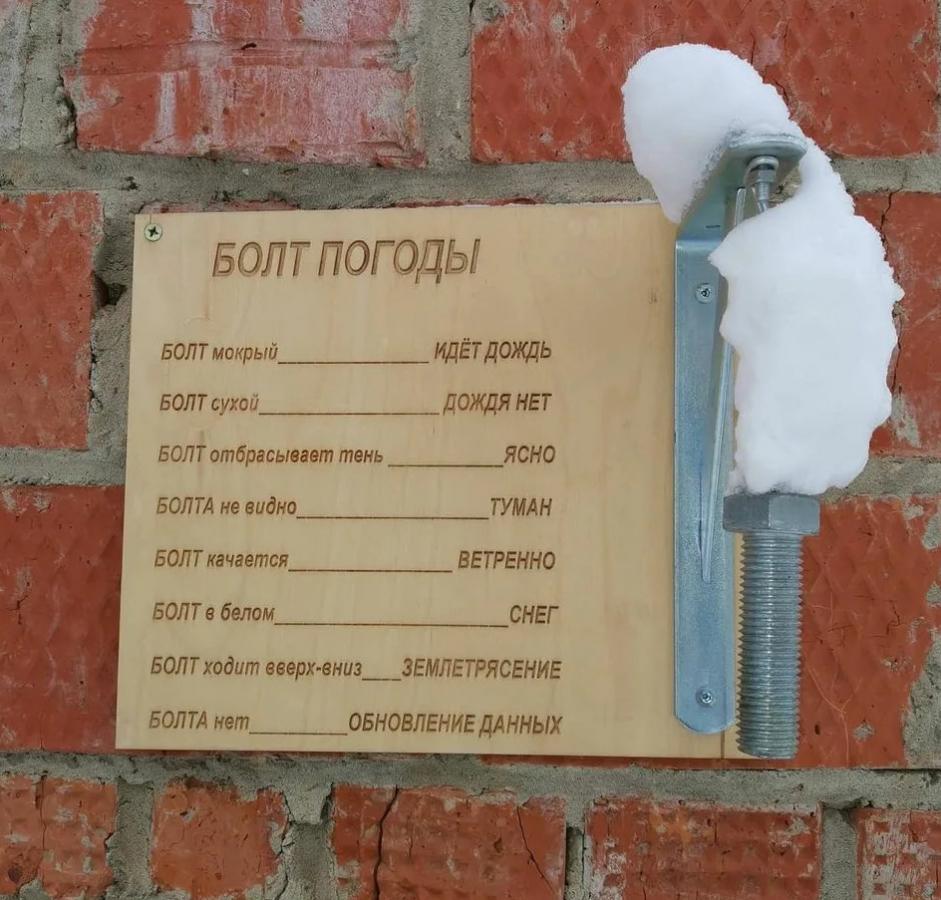 БОЛТ ПОГОДЫ
БОЛТ мокрый____________ ИДЁТ ДОЖДЬ
БОЛТ сухой______________ ДОЖДЯ НЕТ
БОЛТ отбрасывает тень _________ЯСНО
БОЛТА не видно_______________ТУМАН
БОЛТ качается_____________ ВЕТРЕННО
БОЛТ в белом__________________СНЕГ
БОЛТ ходит вверх-вниз___ЗЕМЛЕТРЯСЕНИЕ
БОЛТА нет________ОБНОВЛЕНИЕ ДАННЫХ